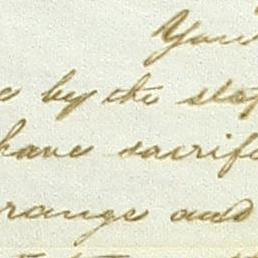 Your
e by the stop
have sacrifi
range and